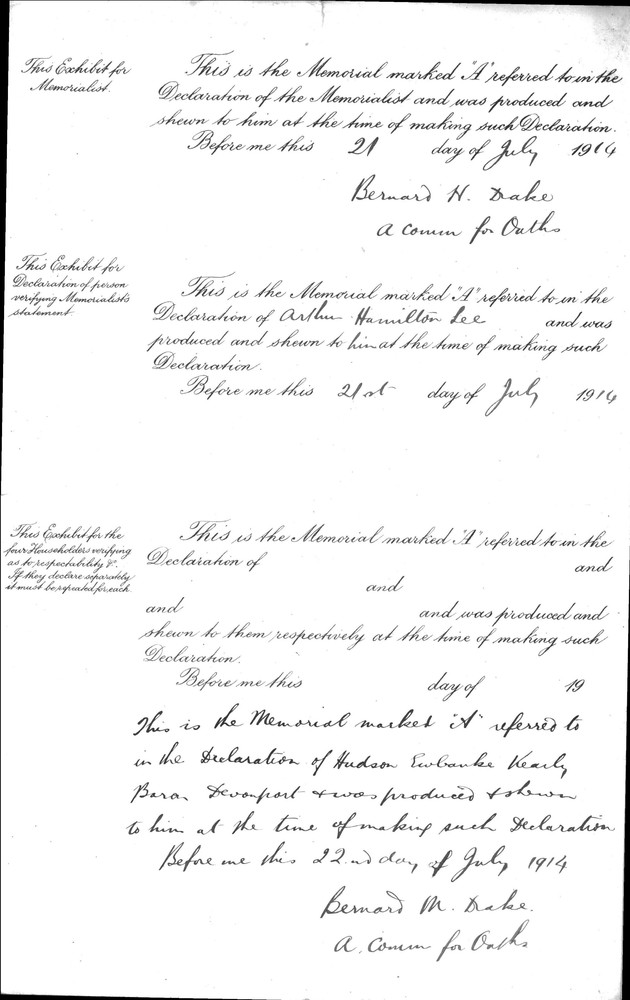 This Exhibit for
Memorialist.
This is the Memorial marked "A" referred to in the
Declaration of the Memorialist and was produced and
shewn to him at the time of making such Declaration.
Before me this 21 day of July 1914
Bernard H. Drake
A Comm for Oaths
This Exhibit for
Declaration of person
verifying Memorialist's
statement
This is the Memorial marked "A" referred to in the
Declaration of Arthur Hamilton Lee and was
produced and shewn to him at the time of making such
Declaration.
Before me this 21st day of July 1914
This Exhibit for the
four Householders verifying
as to respectability &c.
If they declare separately
it must be repeated for each.
This is the Memorial marked "A" referred to in the
Declaration of and
and
and and was produced and
shewn to them respectively at the time of making such
Declaration.
Before me this day of 19
This is the Memorial market "A" referred to
in the Declaration of Hudson Ewbanke Kearly
Baron Devonport & was produced & shewn
to him at the time of making such Declaration
Before me this 22nd day of July 1914
Bernard M. Drake.
A. Comm for Oaths